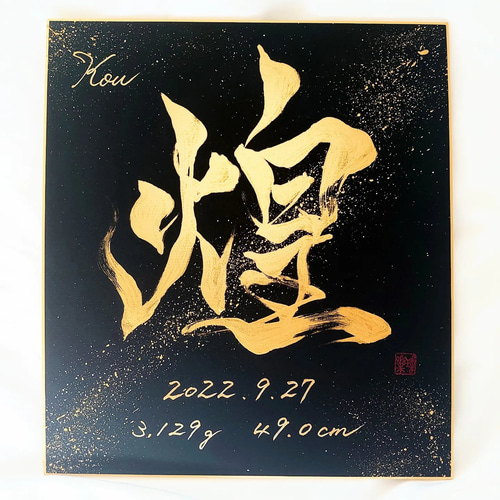 Kou
煌
2022.9.27
3,129g 49.0cm